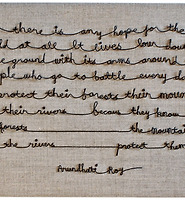 there is any hope for the
ld at all It lives low down
e ground with its arms around
ple who go to battle every d
protect their forests their moun
their rivers because they know
forests the mountai
the rivers protect them
Arundhati Roy